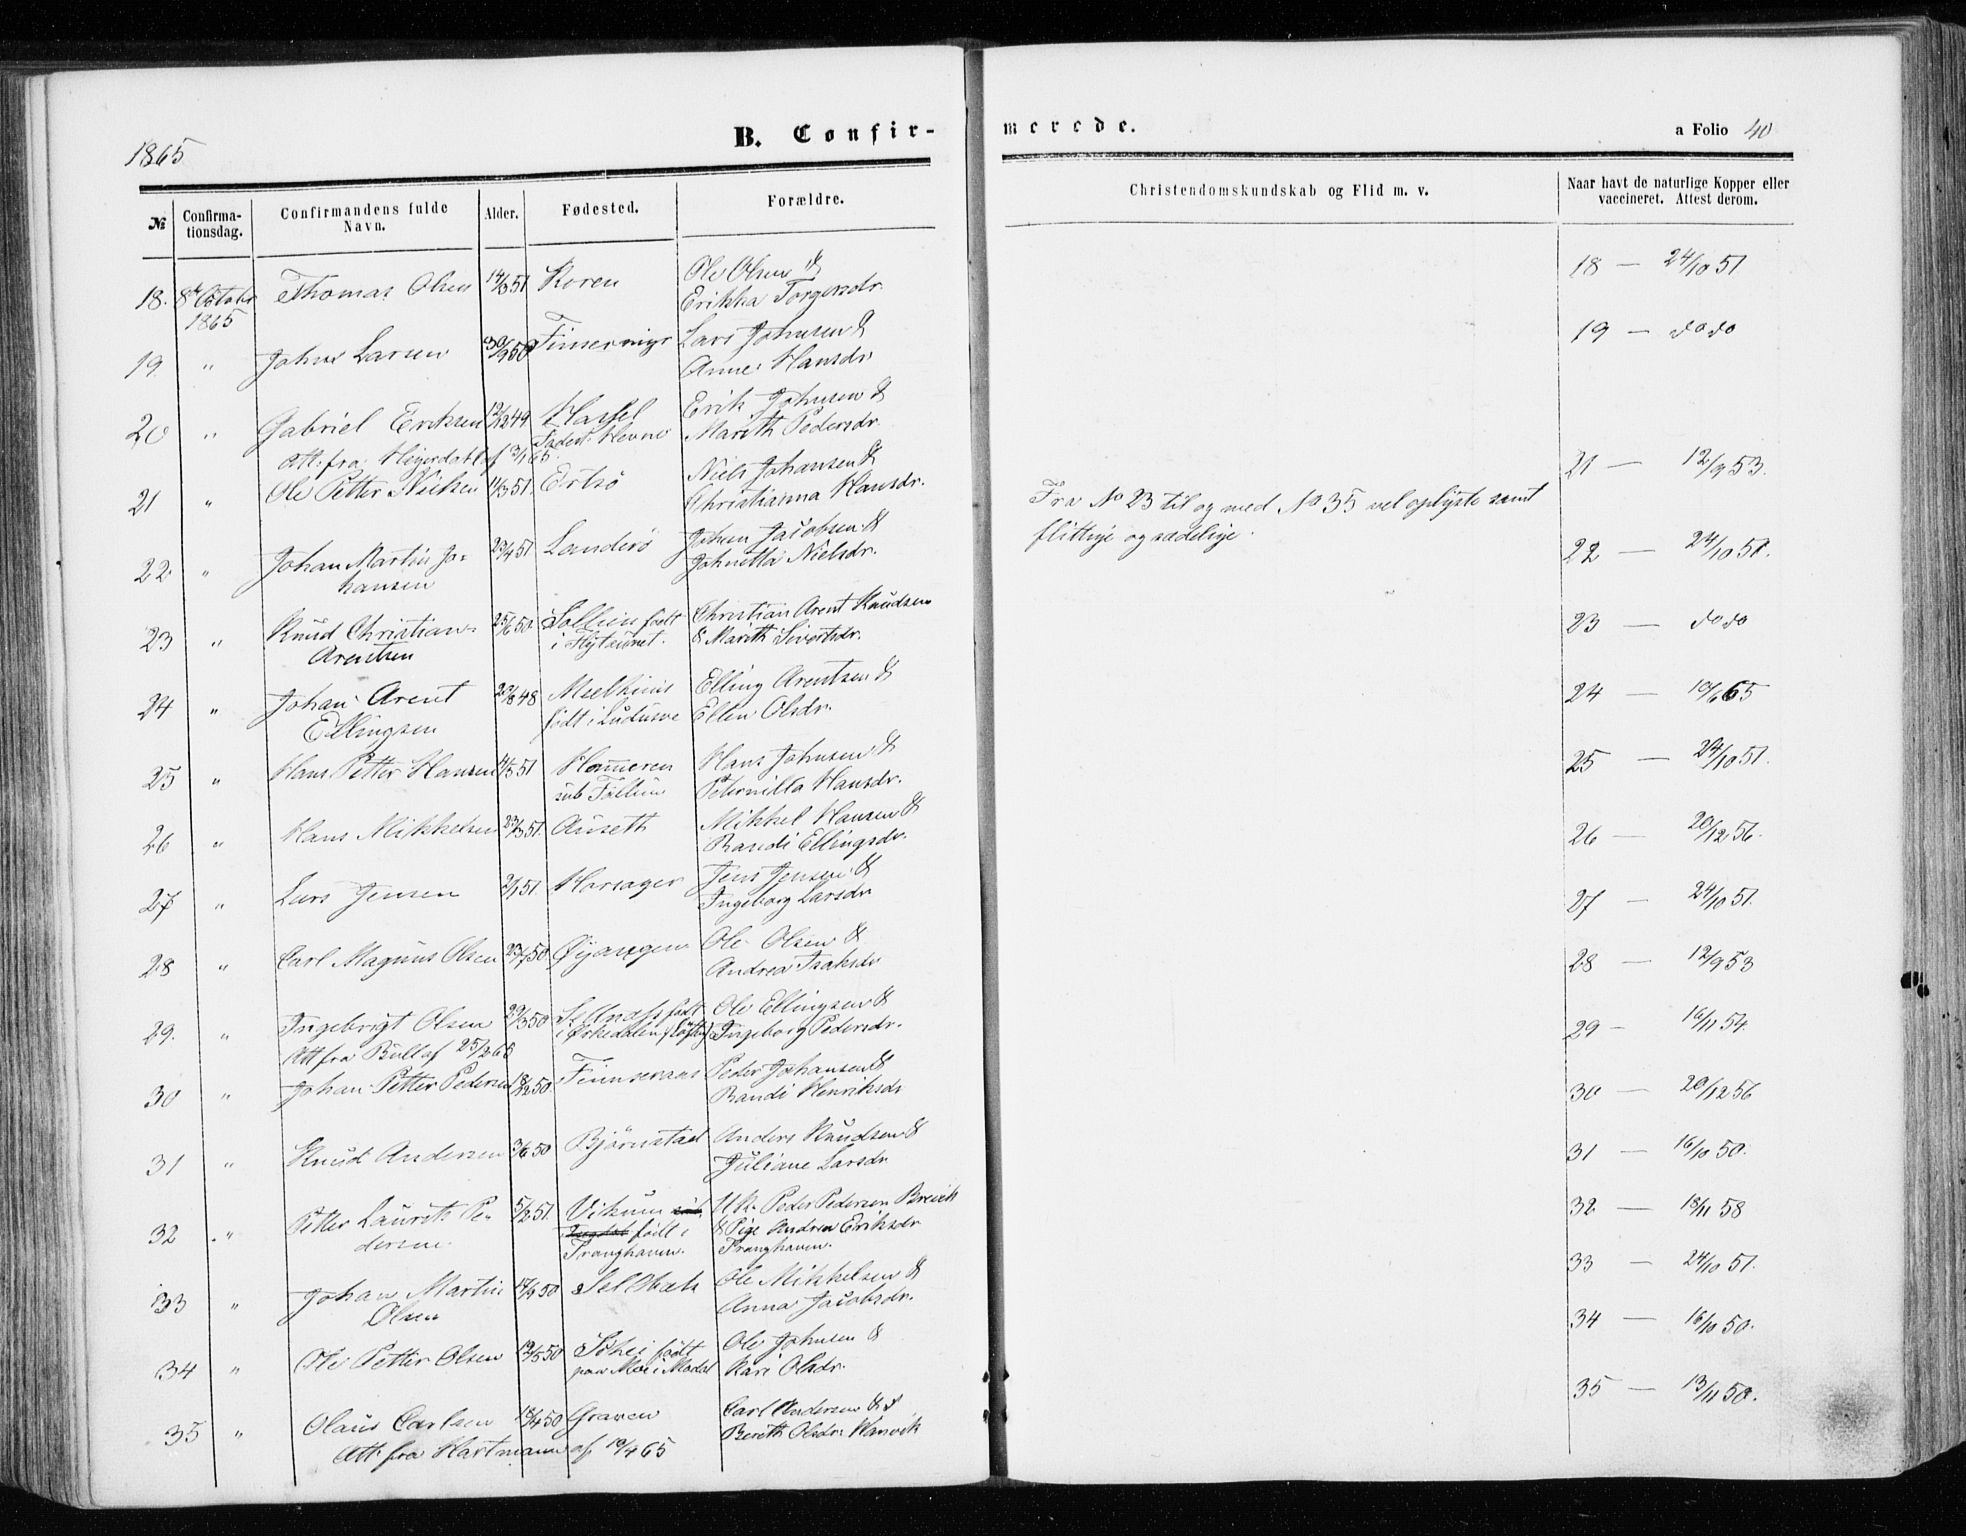 1865
B. Confir-
merede.
a Folio 40
№
Confirma-
tionsdag.
Confirmandens fulde
Navn.
Alder.
Fødested.
Forældre.
Christendomskundskab og Flid m. v.
Naar havt de naturlige Kopper eller
vaccineret. Attest derom.
18. 8de Octobr Thomas Olsen 14/3 51 Koren Ole Olsen &
1865 Erikka Torgersdr.
18 — 24/10 51
19 " Johan Larsen 30/9 50 Lars Johnsen &
Anne Hansdr
19 — do do
20 " Gabriel Eriksen 12/12 49 Hassel Erik Johnsen &
Marith Pedersdr.
Att: fra Heyerdahl af 3/1 65.
21 " Ole Petter Nielsen 11/3 51 Ertsø Niels Johansen &
Christianna Hansdr.
21 — 12/9 53.
Fra No 23 til og med No 35 vel oplyste samt
flittige og sædelige.
22 " Johan Martin Jo- 23/4 51 Landerø Johan Jacobsen &
hansen Johnetta Nielsdr.
22 — 24/10 51.
23 " Knud Christian 25/6 50 født Christian Arent Knudsen
Arentsen i & Marith Sivertsdr.
23 — do do
24 " Johan Arent 20/8 48 Elling Arentsen &
Ellingsen født i Ellen Olsdr.
24 — 10/6 65
25 " Hans Petter Hansen 4/5 51 Hans Johnsen &
sub Peternilla Hansdr.
25 — 24/10 51.
26 " Hans Mikkelsen 23/3 51. Auseth Mikkel Hansen &
Randi Ellingsdr.
26 — 20/12 56.
27 " Lars Jensen 2/1 51. Horsager Jens Jensen &
Ingeborg Larsdr
27 — 24/10 51.
28 " Carl Magnus Olsen 25/7 50 Øyangen Ole Olsen &
Andrea Isaksdr
28 — 12/9 53
29. " Ingebrigt Olsen 29/3 50 Selnæss født Ole Ellingsen &
i Ørkedalen Ingeborg Pedersdr.
Att fra Bull af 25/2 65
29 - 16/11 54.
30 " Johan Petter Pedersen 18/12 50. Peder Johansen &
Randi Henriksdr
30 — 20/12 56
31 " Knud Andersen 3/6 50 Bjørnstad Anders Knudsen &
Juliane Larsdr
31 — 16/10 50.
32 " Petter Laurits Pe- 5/2 51. Vikum U.K. Peder Pedersen Brevik
dersen født i & Pige Andrea Eriksdr
Tranghaven. Tranghaven.
32 — 18/11 58
33 " Johan Martin 14/9 50 Selbæk Ole Mikkelsen &
Olsen Anna Jacobsdr.
33 — 24/10 51.
34 " Ole Petter Olsen 19/5 50 født Ole Johnsen &
paa Moe i Kari Olsdr.
34 — 16/10 50.
35 " Olaus Carlsen 18/4 50 Graven Carl Andersen &
Att. fra Hartmann af 10/4 65 Berith Olsdr. Hamvik
35 — 13/11 50.